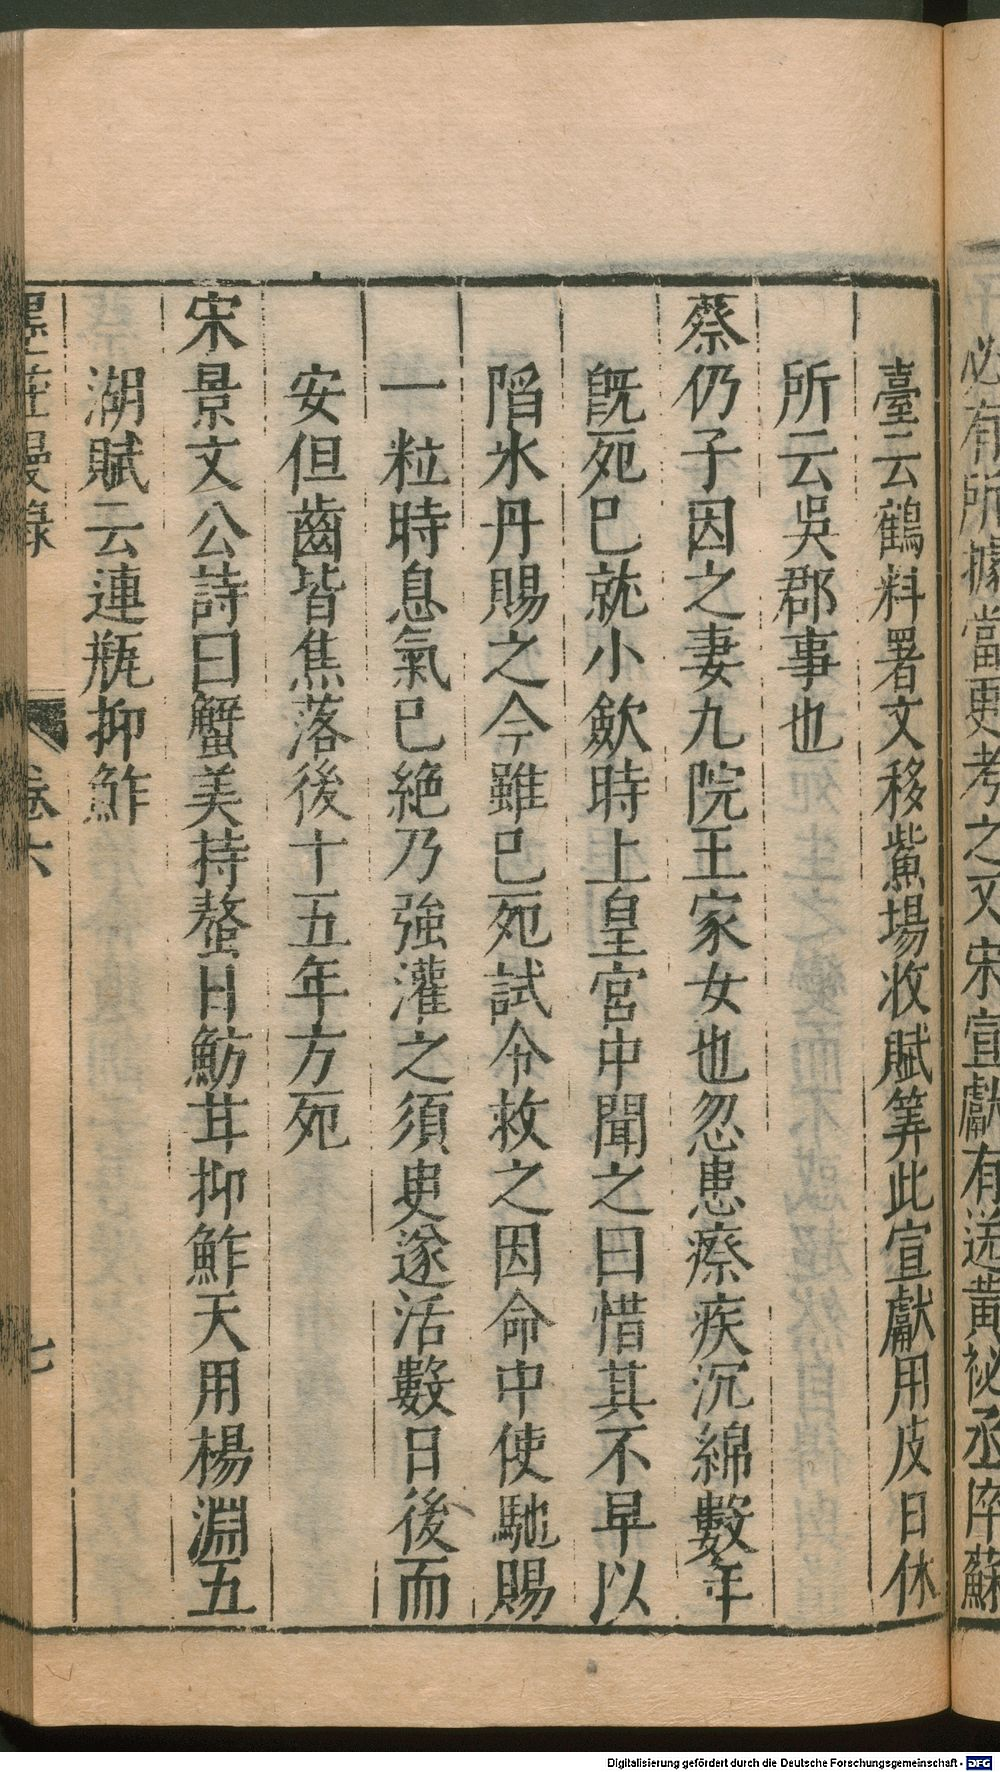 必有所據當更考之又宋宣獻有送黃祕丞倅蘇
臺云鶴料署文移鮆場收賦筭此宣獻用皮日休
所云吳郡事也
蔡仍子因之妻九院王家女也忽患瘵疾沉綿數年
旣死巳就小歛時上皇宮中聞之曰惜其不早以
陷氷丹賜之今雖巳死試令救之因命中使馳賜
一粒時息氣巳絶乃強灌之須臾遂活數日後而
安但齒皆焦落後十五年方死
宋景文公詩曰蟹美持螯日魴茸抑鮓天用楊淵五
湖賦云連瓶抑鮓
墨莊漫錄 卷六 七
Digitalisierung gefördert durch die Deutsche Forschungsgemeinschaft - DFG